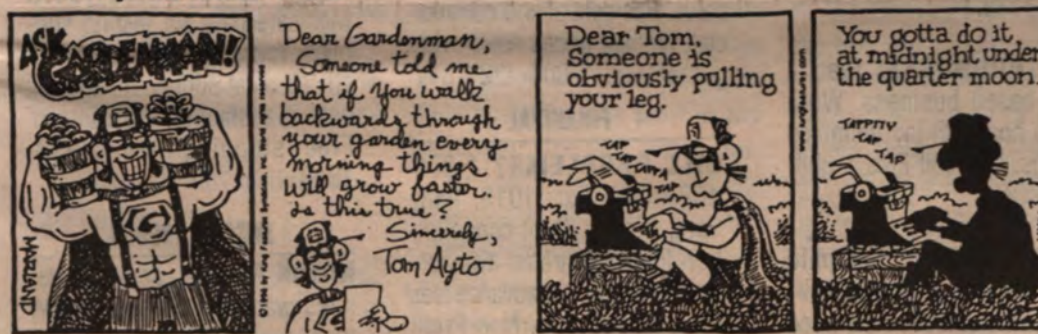 ASK
GARDENMAN!
MARLAND
©1996 by King Features Syndicate, Inc. World rights reserved.
Dear Gardenman,
Someone told me
that if you walk
backwards through
your garden every
morning things
will grow faster.
Is this true?
Sincerely,
Tom Ayto
Dear Tom,
Someone is
obviously pulling
your leg.
TAP
TAP
TAPPA
TAP
You gotta do it,
at midnight under
the quarter moon.
TAPPITY
TAP
TAP